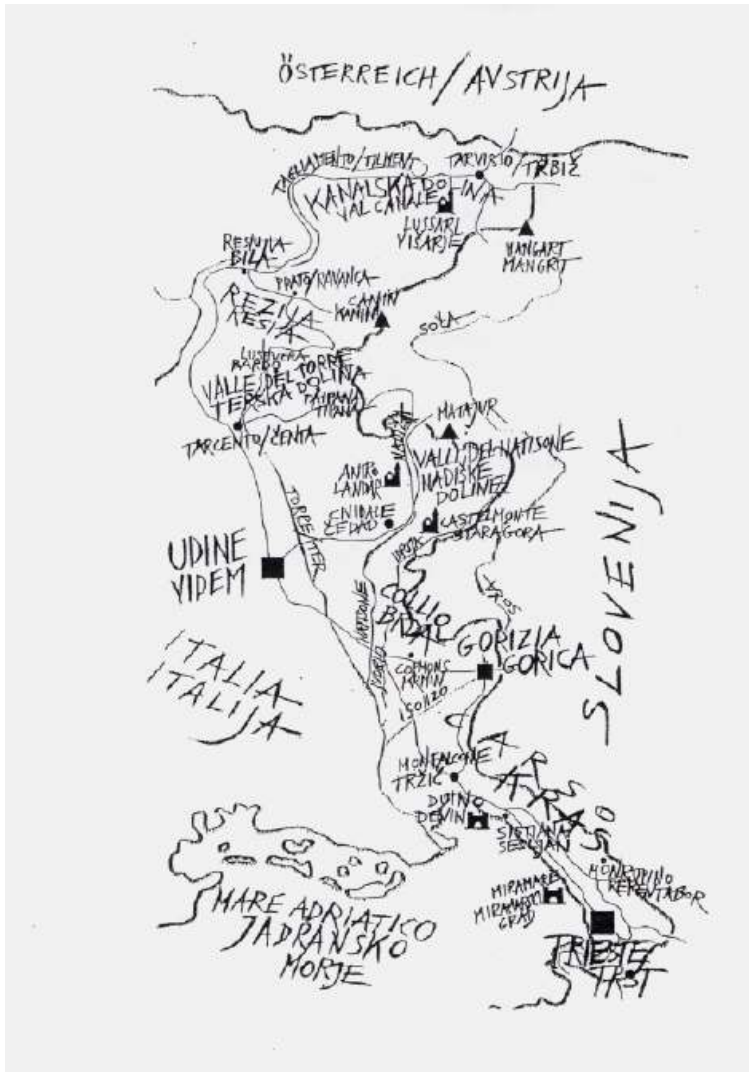 ÖSTERREICH/AVSTRIJA
TAGLIAMENTO/TILMENT
TARVISIO/TRBIŽ
KANALSKA DOLINA
VAL CANALE
LUSSARI
VIŠARJE
MANGART
MANGRT
RESIUTTA
BILA
PRATO/RAVANCA
REZIJA
RESIA
CANIN
KANIN
SOČA
LUSEVERA
BARDO
VALLE DEL TORRE
TERSKA DOLINA
TAIPANA
TIPANA
TARCENTO/ČENTA
MATAJUR
VALLI DEL NATISONE
NADIŠKE
DOLINE
ANTRO
LANDAR
CIVIDALE
ČEDAD
CASTELMONTE
STARAGORA
TORRE/TER
UDINE
VIDEM
SLOVENIJA
NATISONE
COLLIO
BRDA
GORIZIA
GORICA
CORMONS
KRMIN
ISONZO
ITALIA
ITALIJA
CARSO
KRAS
MONFALCONE
TRŽIČ
DUINO
DEVIN
SISTIANA
SESLJAN
MONRUPINO
REPENTABOR
MIRAMARE
MIRAMARSKI
GRAD
MARE ADRIATICO
JADRANSKO
MORJE
TRIESTE
TRST